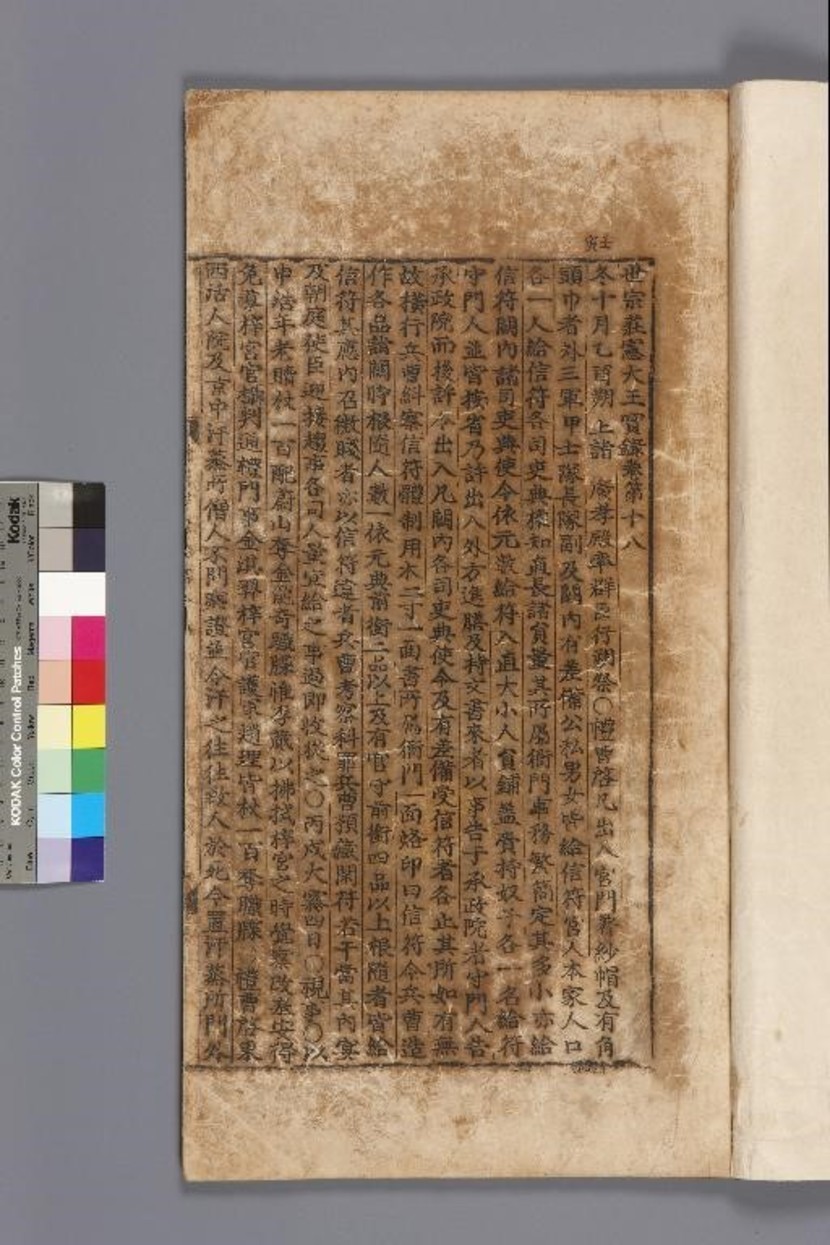 壬寅
世宗莊憲大王實錄卷第十八
冬十月乙酉朔上詣 廣孝殿率群臣行朔祭○禮曹啓凡出入宮門着紗帽及有角
頭巾者外三軍甲士隊長隊副及闕內有差備公私男女皆給信符宮人本家人口
各一人給信符各司吏典權知直長諸員量其所屬衙門事務繁簡定其多小亦給
信符闕內諸司吏典使令依元數給符入直大小人員鋪蓋賫持奴子各一名給符
守門人並皆按省乃許出入外方進膳及持文書來者以事告于承政院者守門人告
承政院而後許令出入凡闕內各司吏典使令及有差備受信符者各止其所如有無
故橫行兵曹糾察信符體制用木二寸一面書所屬衙門一面烙印曰信符令兵曹造
作各品詣闕時根隨人數一依元典前銜二品以上及有官守前銜四品以上根隨者皆給
信符其應內召微賤者亦以信符違者兵曹考察科罪兵曹預藏閑符若干當其內宴
及朝庭使臣迎接趨事各司人量宜給之事過卽收從之○丙戌大霧四日○視事○以
申浩年老贖杖一百配蔚山奪金龍奇職牒惟李蕆以拂拭梓宮之時覺察改塗安得
免漢梓宮官護判通禮門事金滉羿梓宮官護軍趙理皆杖一百奪職牒 禮曹啓東
西活人院及京中汗蒸所僧人不問病證並令汗之往往致人於死今置汗蒸所門外